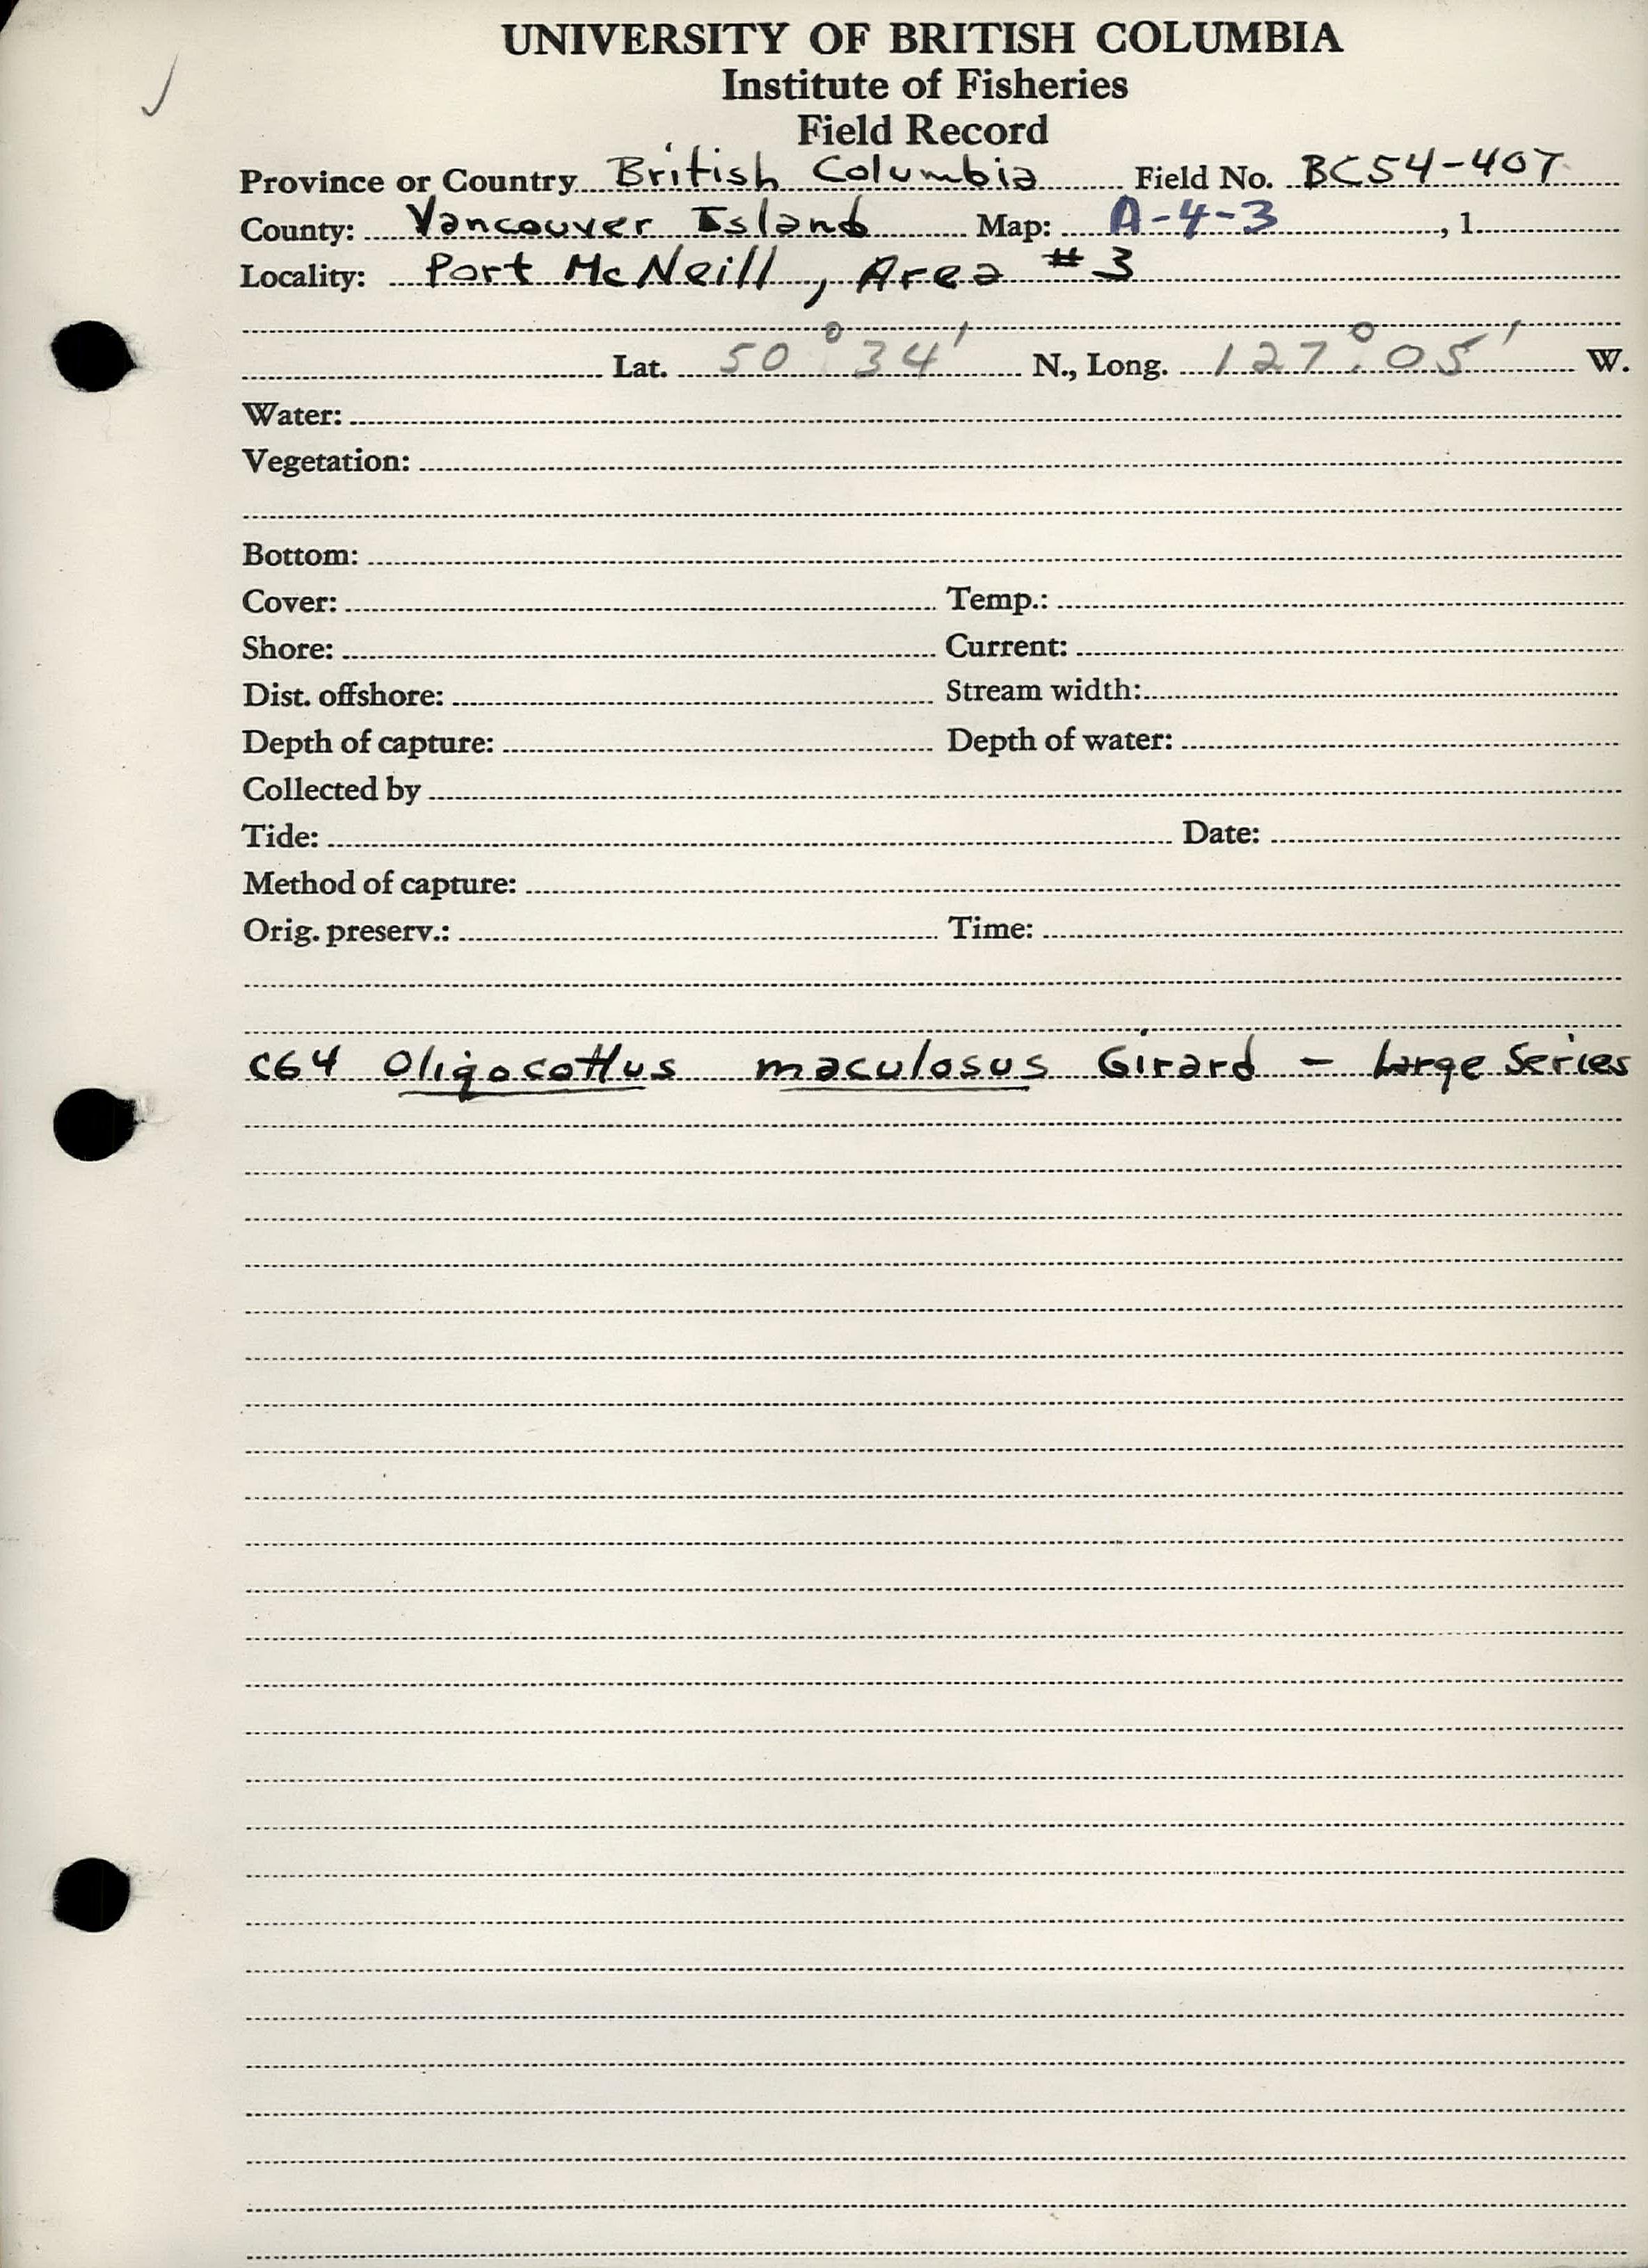 UNIVERSITY OF BRITISH COLUMBIA
Institute of Fisheries
Field Record
Province or Country British Columbia Field No. BC54-407
County: Vancouver Island Map: A-4-3, 1
Locality: Port McNeill, Area #3
Lat. 50° 34' N., Long. 127° 05' W.
Water:
Vegetation:
Bottom:
Cover: Temp.:
Shore: Current:
Dist. offshore: Stream width:
Depth of capture: Depth of water:
Collected by
Tide: Date:
Method of capture:
Orig. preserv.: Time:
C64 Oligocottus maculosus Girard - Large Series